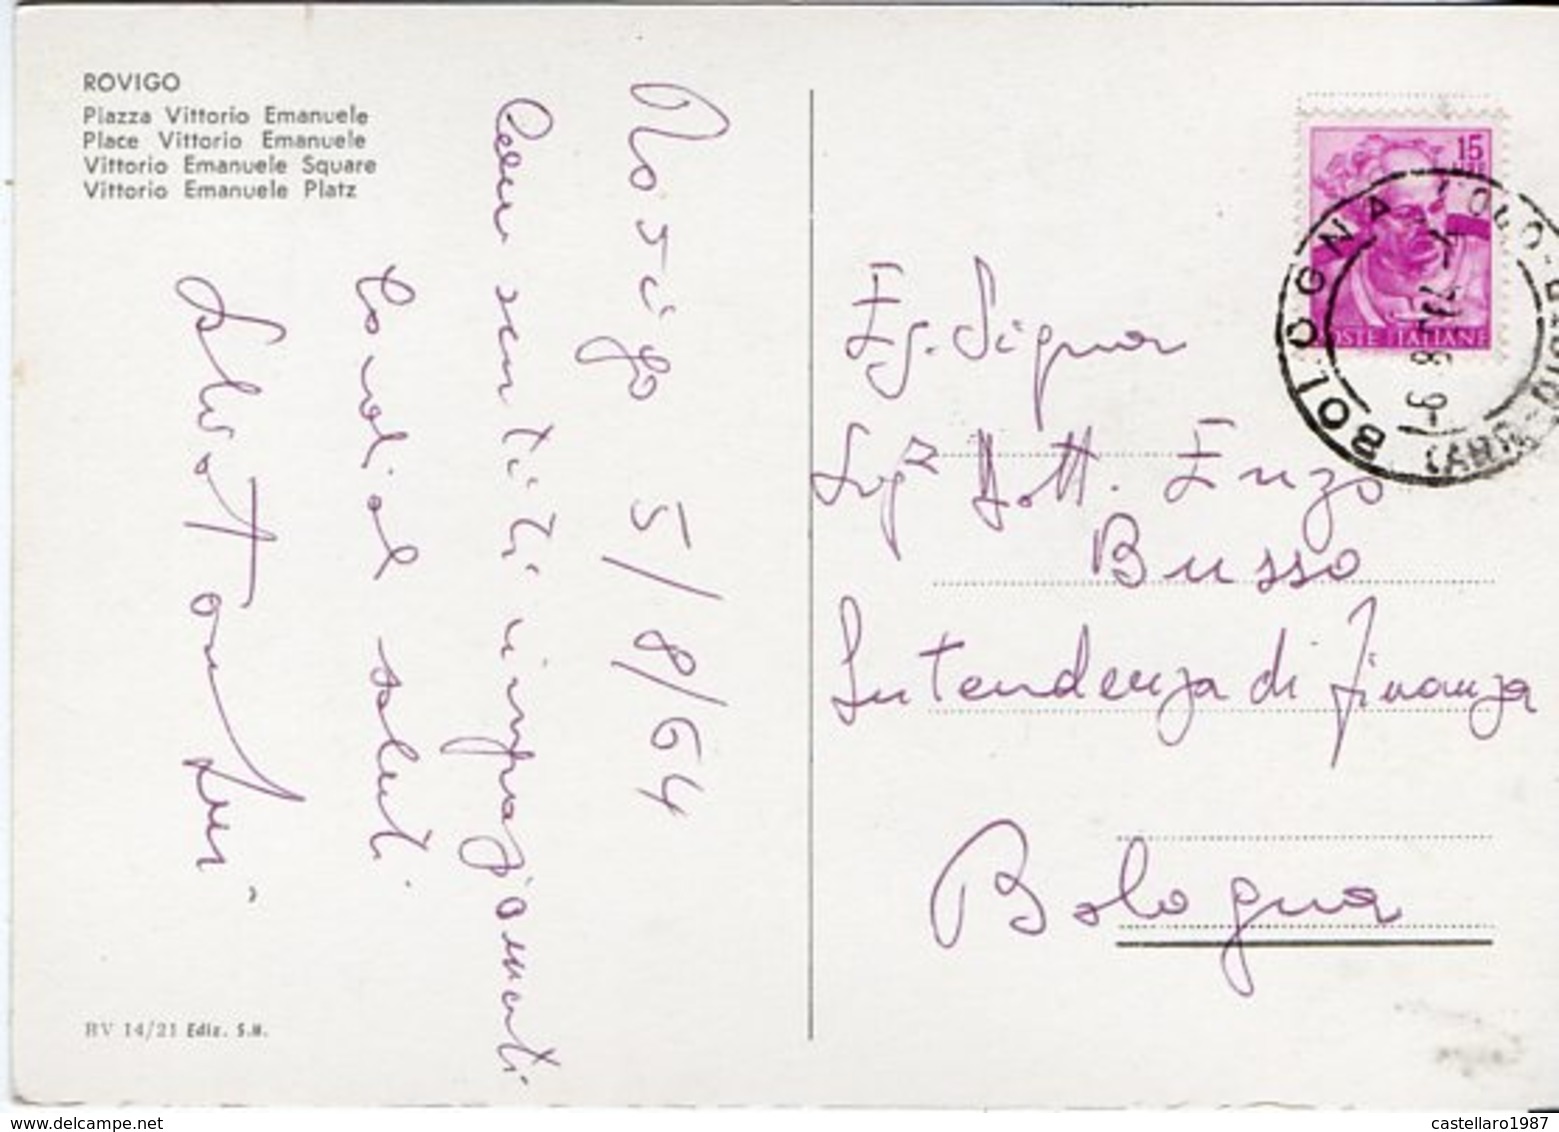 ROVIGO
Piazza Vittorio Emanuele
Place Vittorio Emanuele
Vittorio Emanuele Square
Vittorio Emanuele Platz
Rovigo 5/8/64
sentiti ringraziamenti
Cordiali saluti
RV 14/21 Ediz. S.M.
15
LIRE
POSTE ITALIANE
BOLOGNA
Eg. Signor
Dott. Enzo
Busso
Intendenza di Finanza
Bologna
castellaro1987